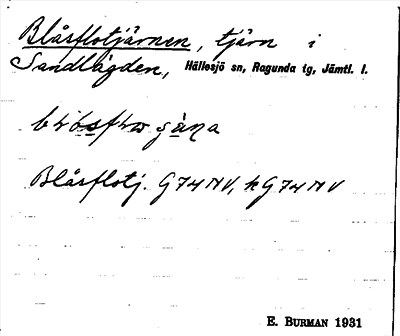 Blåsflotjärnen, tjärn i
Sandlägden, Hällesjö sn, Ragunda tg, Jämtl. l.
Blåsflotj. G 74 NV, h G 74 NV
E. BURMAN 1931